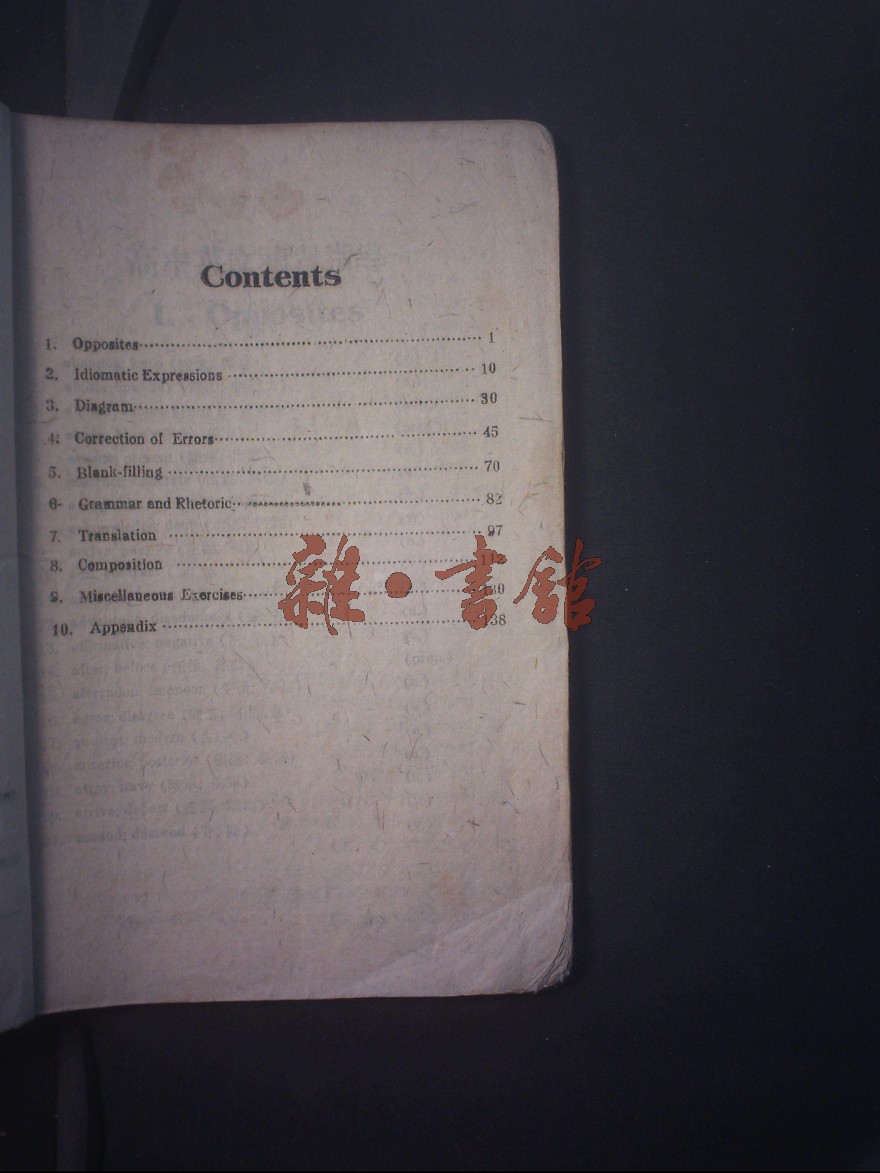 Contents
1. Opposites 1
2. Idiomatic Expressions 10
3. Diagram 30
4. Correction of Errors 45
5. Blank-filling 70
6- Grammar and Rhetoric 82
7. Translation 97
8. Composition 112
9. Miscellaneous Exercises 130
10. Appendix 138
雜·書館